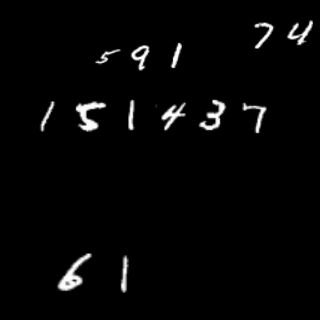 74
591
151437
61